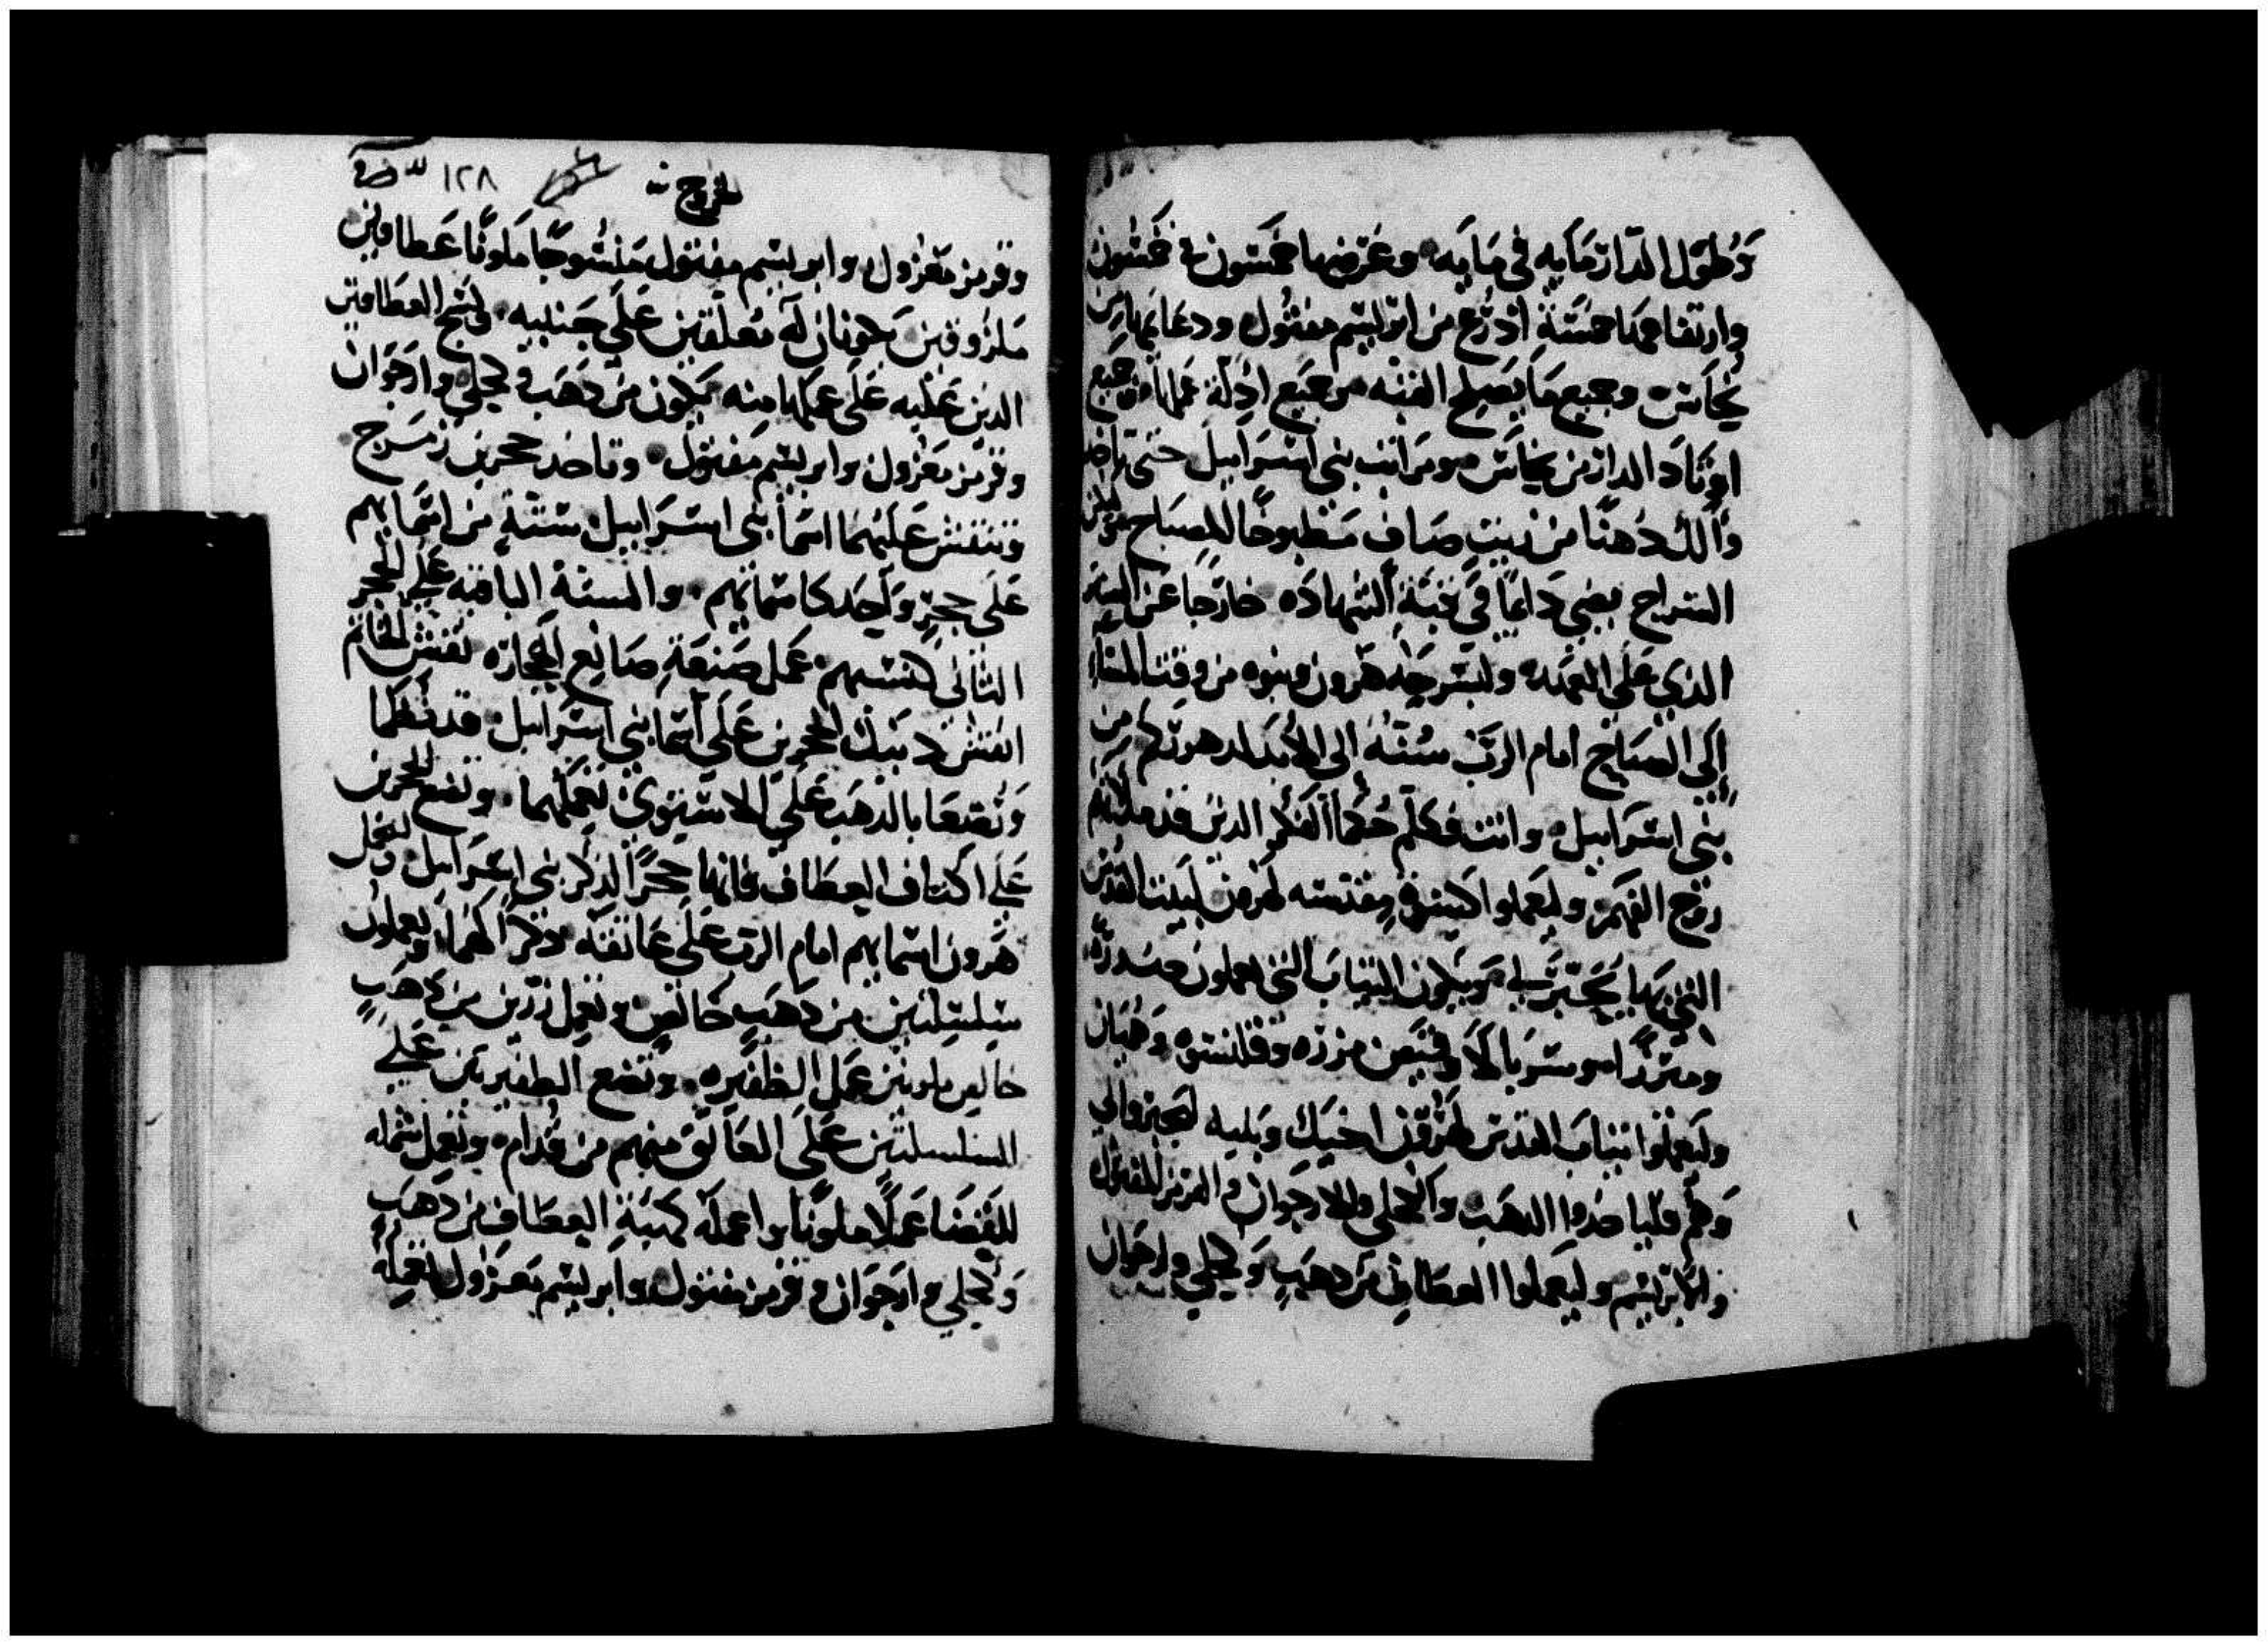 وَطول الدار مايه في مايه وعرضها خمسون في خمسون
وارتفاعها خمسة اذرع من ابريسم مفتول ودعايمها من
نحاس وجميع ما يصلح القبه من جميع اولة عملها وجميع
اوتاد الدار من نحاس ومر انت بني اسراييل حتى ياخذ
وا لك دهنًا من زيت صاف مطبوخًا للمصباح
السراج يضي دايمًا في قبة الشهاده خارجًا عن الستر
الذي على العهد وليسرجه هرون وبنوه من وقت المسا
الى الصباح امام الرب سنة الى الابد لدهوركم من
بني اسراييل وانت فكلم حكما الفكر الذين قد ملاتهم
روح الفهم وليعملوا كسوة مقدسه لهرون لبيت القدس
التي بها يحبر لي ويكون الثياب التي يعملون صدرة
ومزرًا وسربالا وقميص مزره وقلنسوه وهميان
وليعملوا ثياب القدس لهرون اخيك وبنيه ليحبروا لي
وهم فلياخذوا الذهب والكحلي والارجوان والقرمز المفتول
والابريسم وليعملوا العطاف من دهب وكحلي وارجوان
خروج
١٢٨
وقرمز مغزول وابريسم مفتول منسوجًا ملونًا عطافين
ملزوقين يكونان له معلقين على جنبيه نسج العطافين
الذين عليه على عملها منه يكون من دهب وكحلي وارجوان
وقرمز مغزول وابريسم مفتول وتاخذ حجرين زمرج
وتنقش عليهما اسما بني اسراييل ستة من اسمايهم
على حجرٍ واحد كاسمايهم والستة الباقيه على الحجر
الثاني كنسبهم عمل صنعة صانع الحجاره نقش الخاتم
انقش دينك الحجرين على اسما بني اسراييل قد نظما
وتصعا بالذهب على الاستوى تعملهما وتضع الحجرين
على اكتاف العطاف فانها حجرًا لذكر بني اسراييل وليحمل
هرون اسمايهم امام الرب على عاتقه ذكرا لهما ويعملون
سلسلتين من دهب خالص وتعمل زرين من دهب
خالص ملونين عمل الظفيره وتضع الظفيرتين على
السلسلتين على العاتق منهم من قدام وتعمل شمله
للقضا عملًا ملونًا واعمله كهية العطاف من دهب
وكحلي وارجوان وقرمز مفتول وابريسم مغزول تعمله